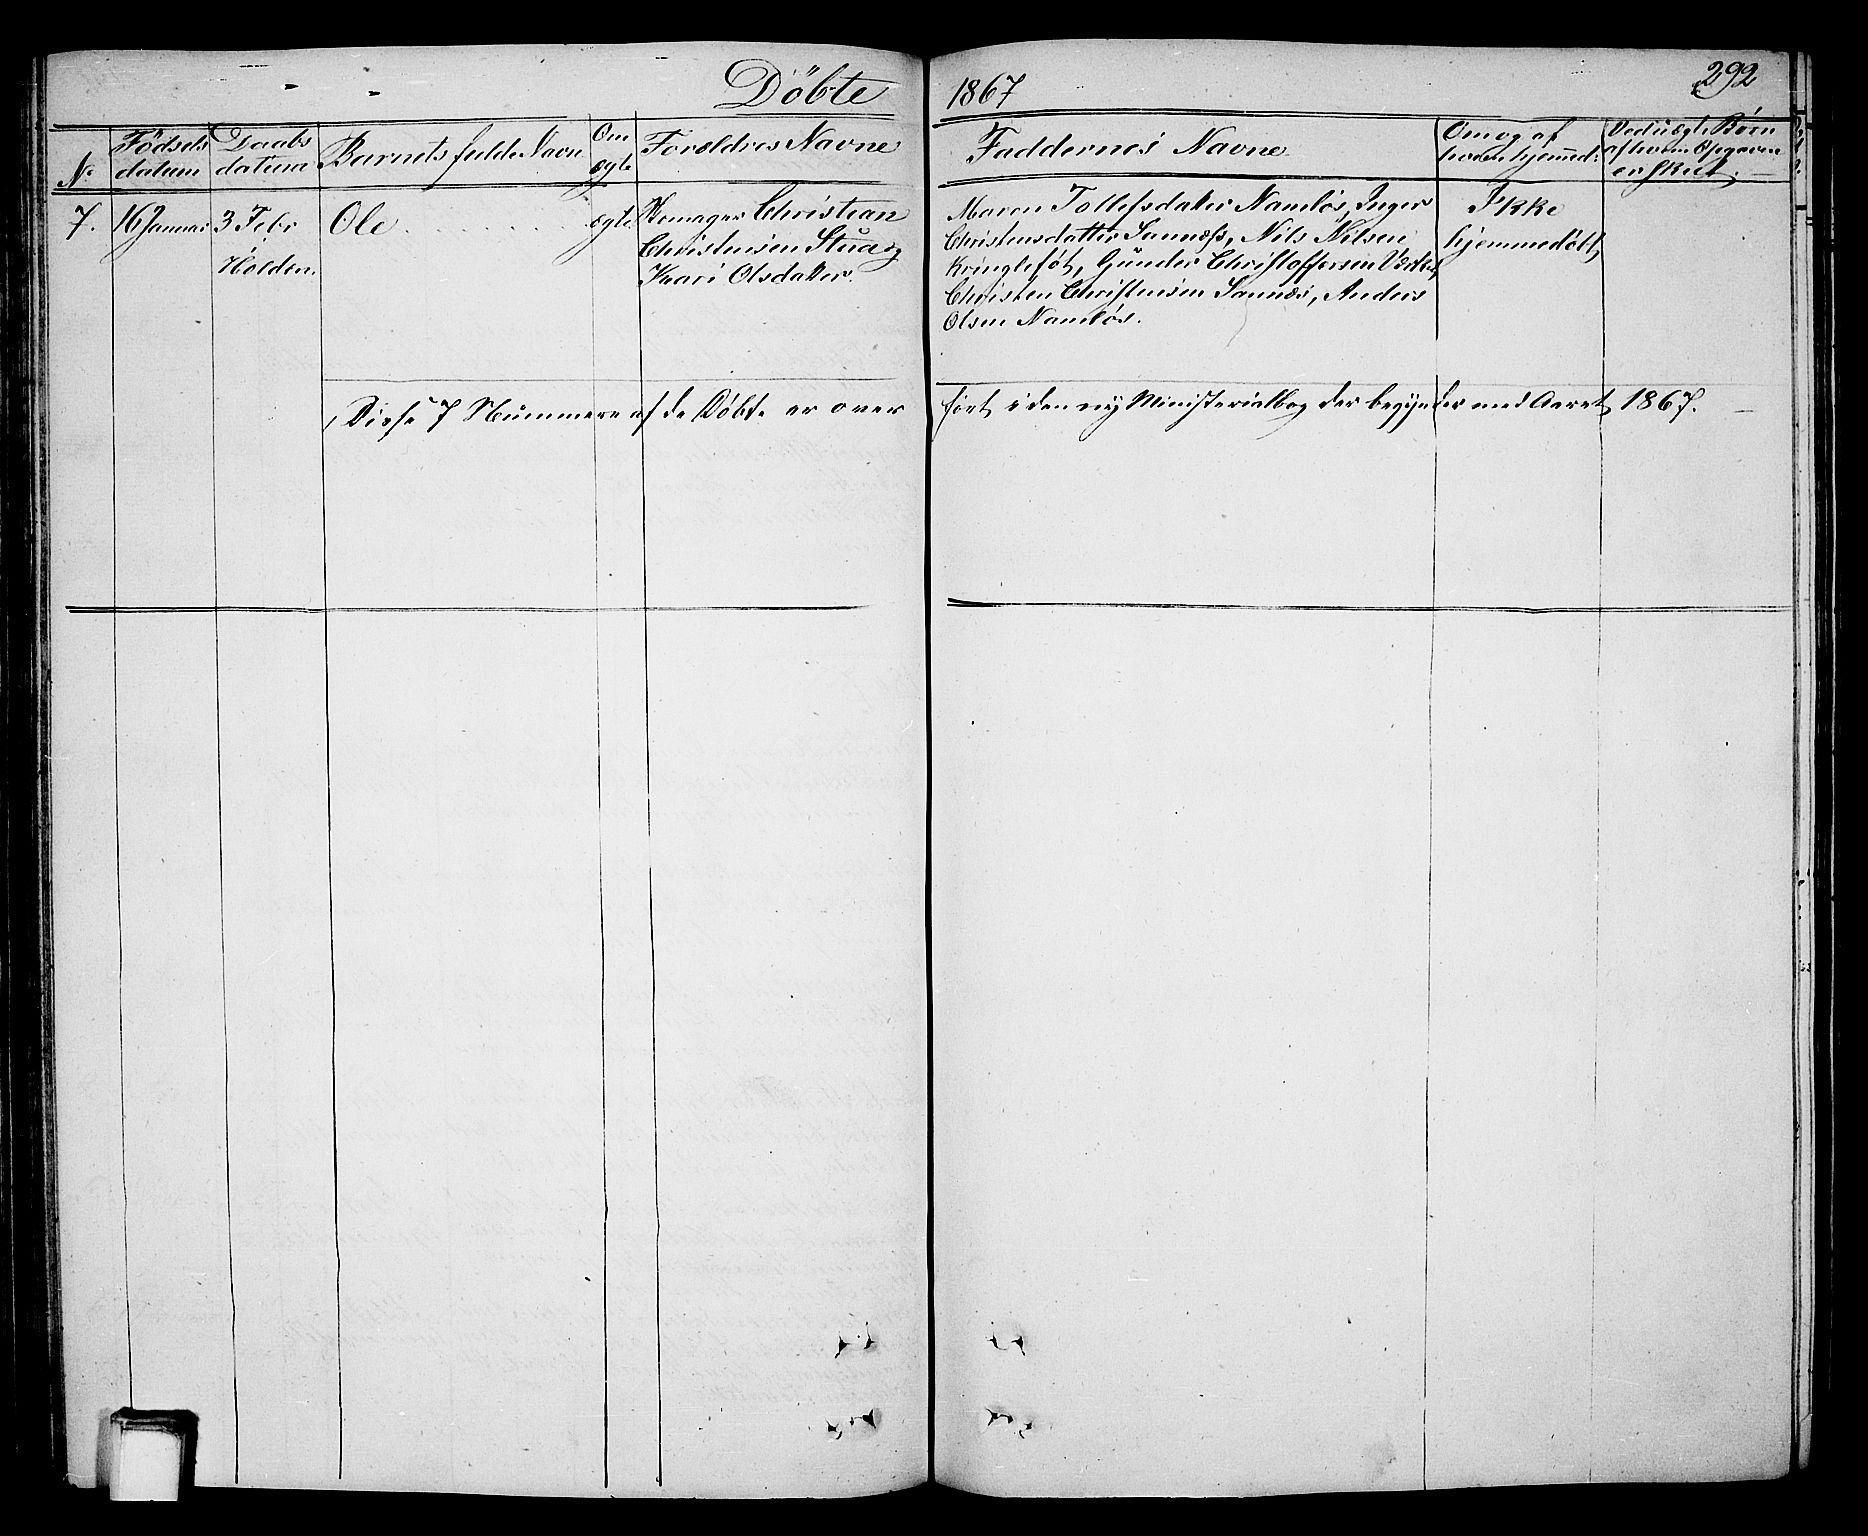 Döbte 1867
292
No
Fødsels datum
Daabs datum
Barnets fulde Navn
Om ægte
Forældres Navne
Faddernes Navne
Om og af hvem hjemmed:
Ved uægte Børn af hvem Opgaven er skeet.
7.
16 Januar
3 Febr
Holden.
Ole
ægte
Christian
Christensen Stua og
Kari Olsdatter.
Maren Tollefsdatter Namløs, Inger
Christensdatter Sannæss, Nils Nilsen
Kringlefot, Gunder Christoffersen
Christen Christensen Sannæs, Anders
Olsen Namløs.
Ikke
hjemmedöbt
Disse 7 Nummere af de Döbte er over
ført i den ny Ministerialbog der begynder med Aaret 1867.